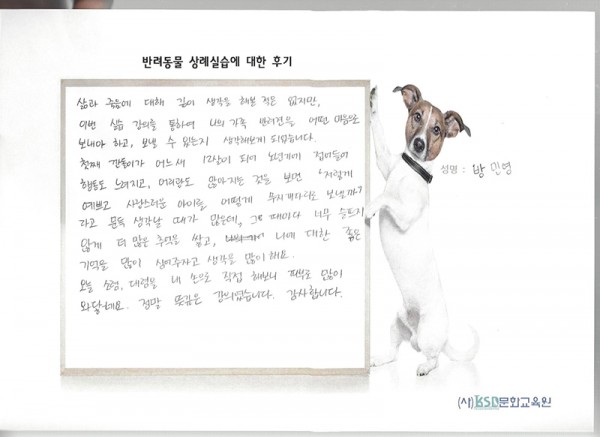 반려동물 상례실습에 대한 후기
삶과 죽음에 대해 깊이 생각을 해본 적은 없지만,
이번 실습 강의를 통하여 나의 가족 반려견을 어떤 마음으로
보내야 하고, 보낼 수 있는지 생각해보게 되었습니다.
첫째 깐돌이가 어느새 12살이 되어 노년기에 접어들어
행동도 느려지고, 어리광도 많아지는 것을 보면 '저렇게
예쁘고 사랑스러운 아이를 어떻게 무지개다리로 보낼까?'
라고 문득 생각날 때가 많은데, 그 때마다 너무 슬프지
않게 더 많은 추억을 쌓고, 너에 대한 좋은
기억을 많이 심어주자고 생각을 많이 해요.
오늘 소렴, 대렴을 내 손으로 직접 해보니 많이
와닿네요. 정말 뜻깊은 강의였습니다. 감사합니다.
성명 : 방민영
(사)KSD문화교육원